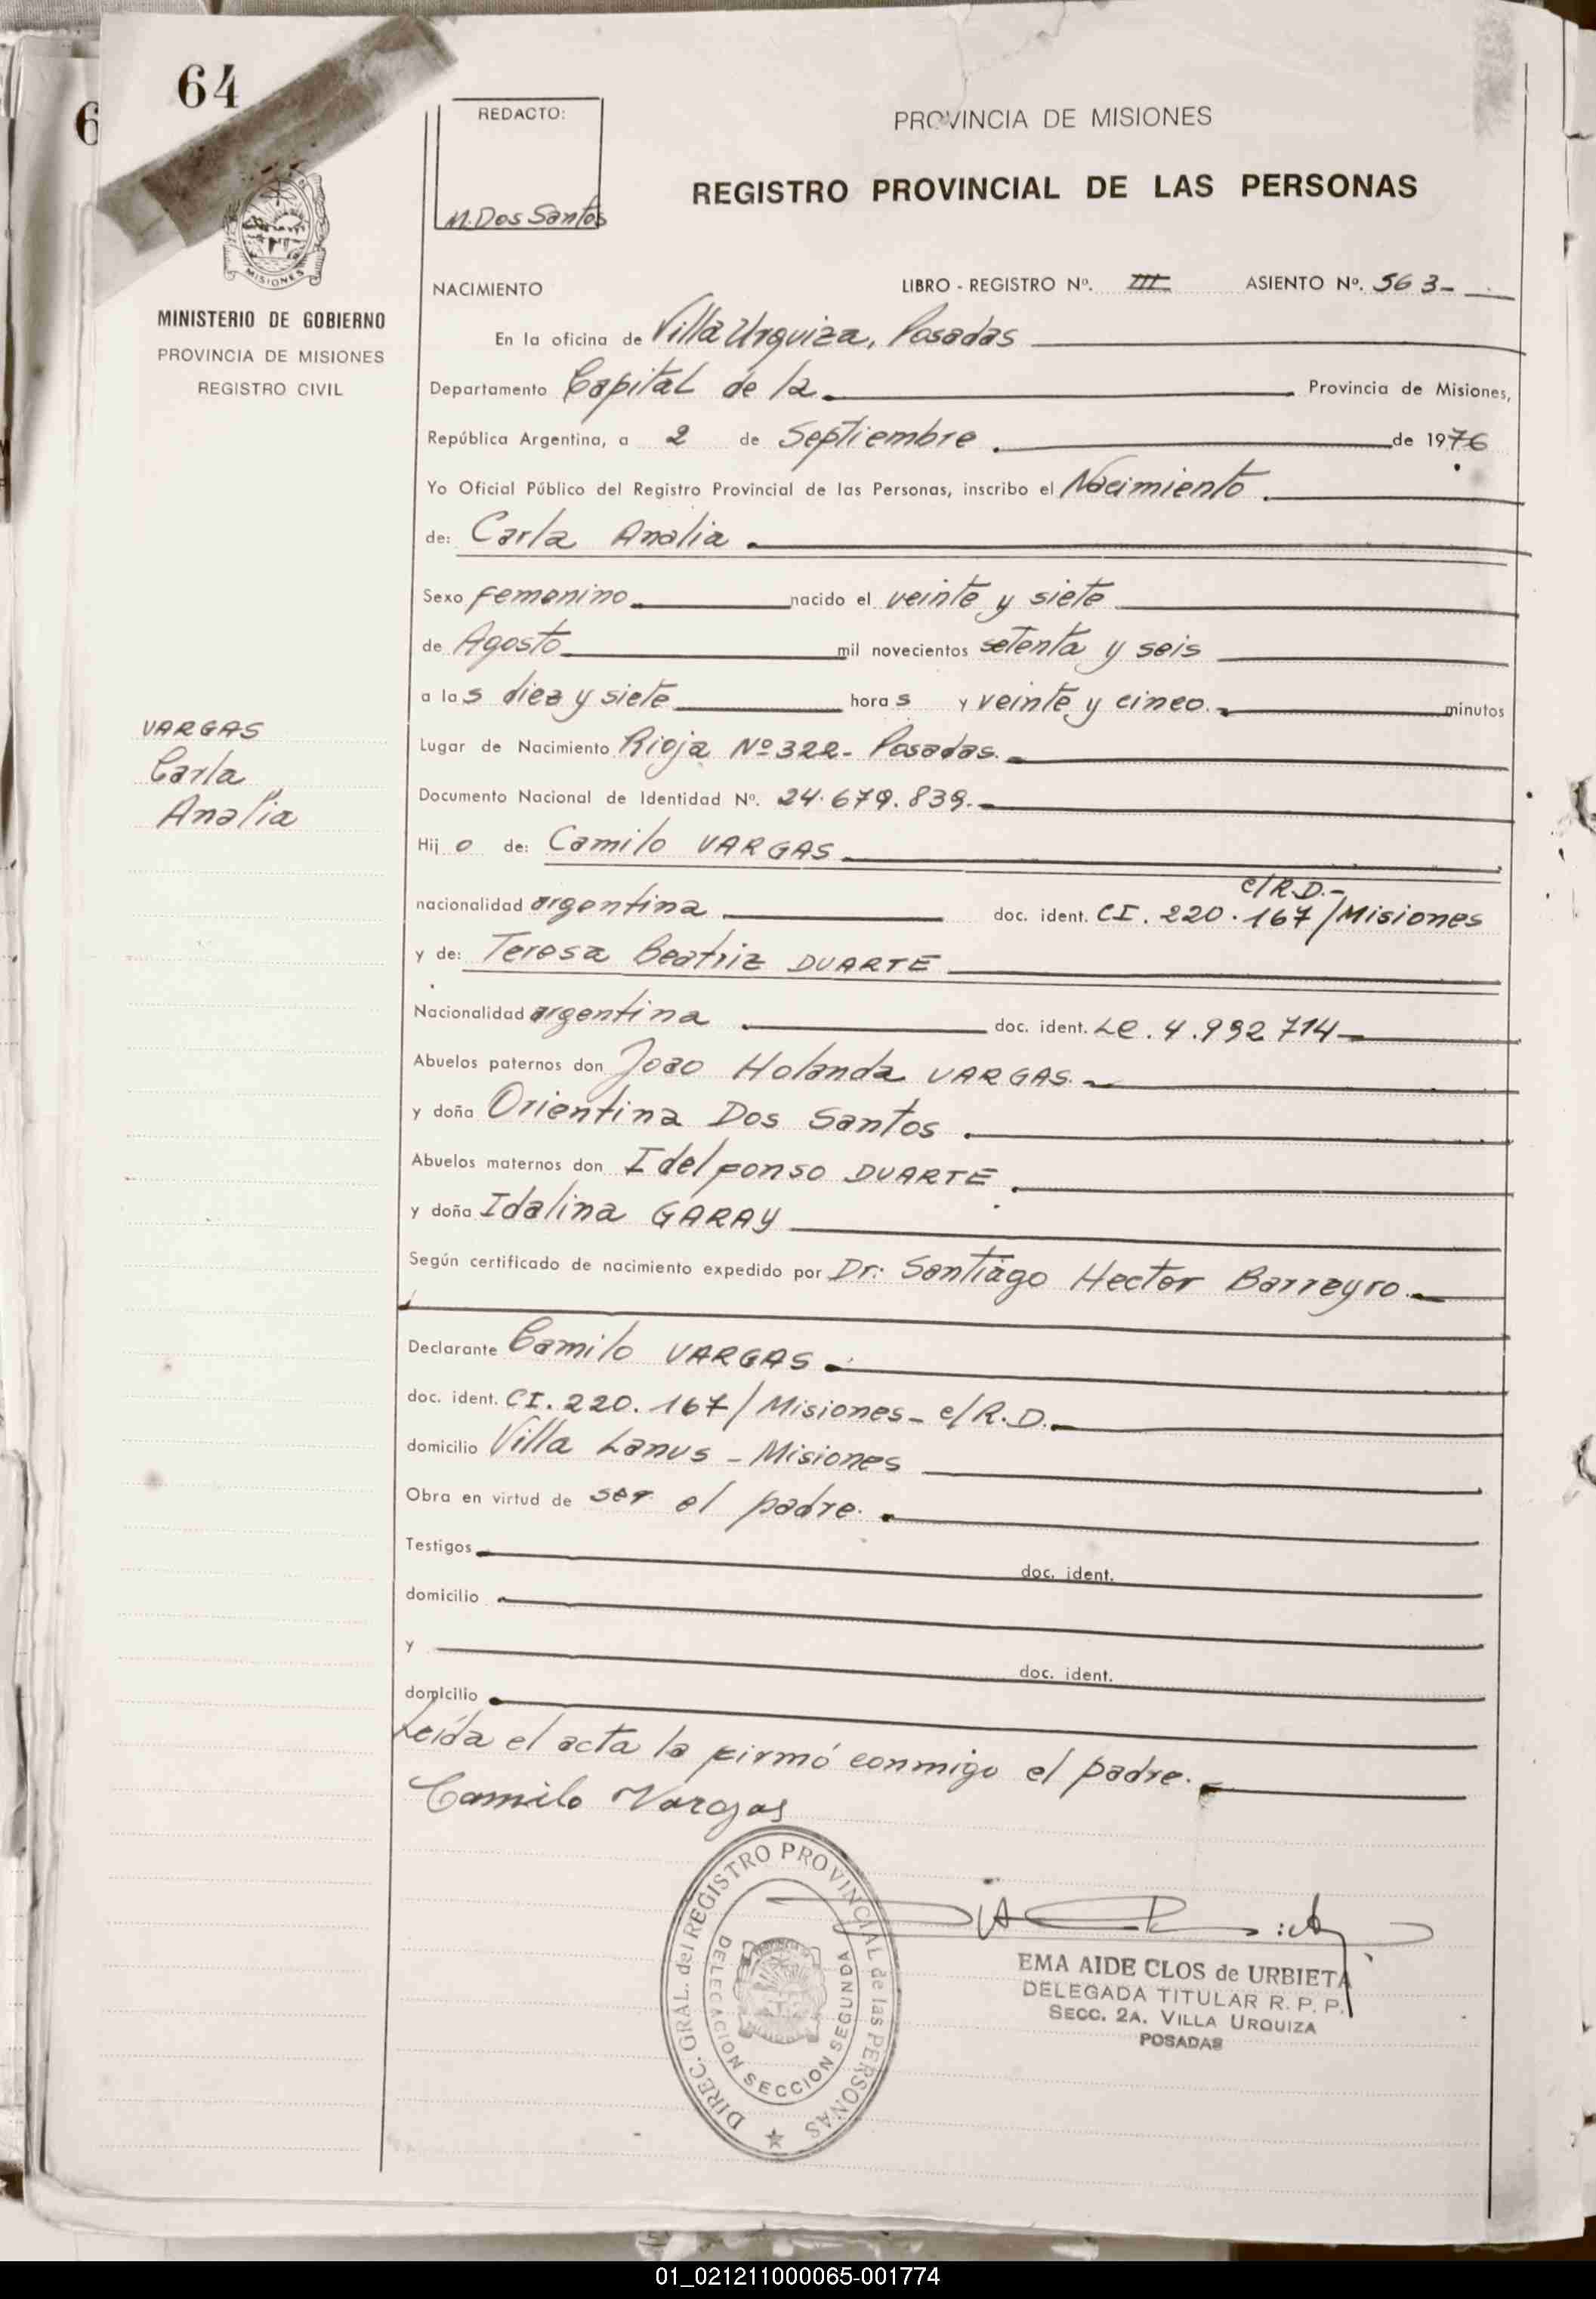 64
6
REDACTO:
M. Dos Santos
PROVINCIA DE MISIONES
REGISTRO PROVINCIAL DE LAS PERSONAS
MISIONES
MINISTERIO DE GOBIERNO
PROVINCIA DE MISIONES
REGISTRO CIVIL
NACIMIENTO LIBRO - REGISTRO Nº. III ASIENTO Nº. 563-
En la oficina de Villa Urquiza, Posadas
Departamento Capital de la Provincia de Misiones,
República Argentina, a 2 de Septiembre. de 1976
Yo Oficial Público del Registro Provincial de las Personas, inscribo el Nacimiento.
de: Carla Analia.
Sexo femenino nacido el veinte y siete
de Agosto mil novecientos setenta y seis
a las diez y siete horas y veinte y cinco. minutos
VARGAS
Carla
Analia
Lugar de Nacimiento Rioja Nº 322- Posadas.
Documento Nacional de Identidad Nº. 24.679.839.-
Hijo de: Camilo VARGAS
c/R.D.-
nacionalidad argentina doc. ident. CI. 220.167/Misiones
y de: Teresa Beatriz DUARTE
Nacionalidad argentina doc. ident. LC. 4.992714
Abuelos paternos don Joao Holanda VARGAS.
y doña Orientina Dos Santos.
Abuelos maternos don Idelfonso DUARTE.
y doña Idalina GARAY
Según certificado de nacimiento expedido por Dr: Santiago Hector Barreyro.
Declarante Camilo VARGAS.
doc. ident. CI. 220.167/Misiones- c/R.D.
domicilio Villa Lanus - Misiones
Obra en virtud de ser el padre.
Testigos doc. ident.
domicilio
y doc. ident.
domicilio
Leída el acta la firmó conmigo el padre.
Camilo Vargas
DIREC. GRAL. del REGISTRO PROVINCIAL de las PERSONAS
DELEGACION SECCION SEGUNDA
EMA AIDE CLOS de URBIETA
DELEGADA TITULAR R. P. P.
SECC. 2A. VILLA URQUIZA
POSADAS
01_021211000065-001774